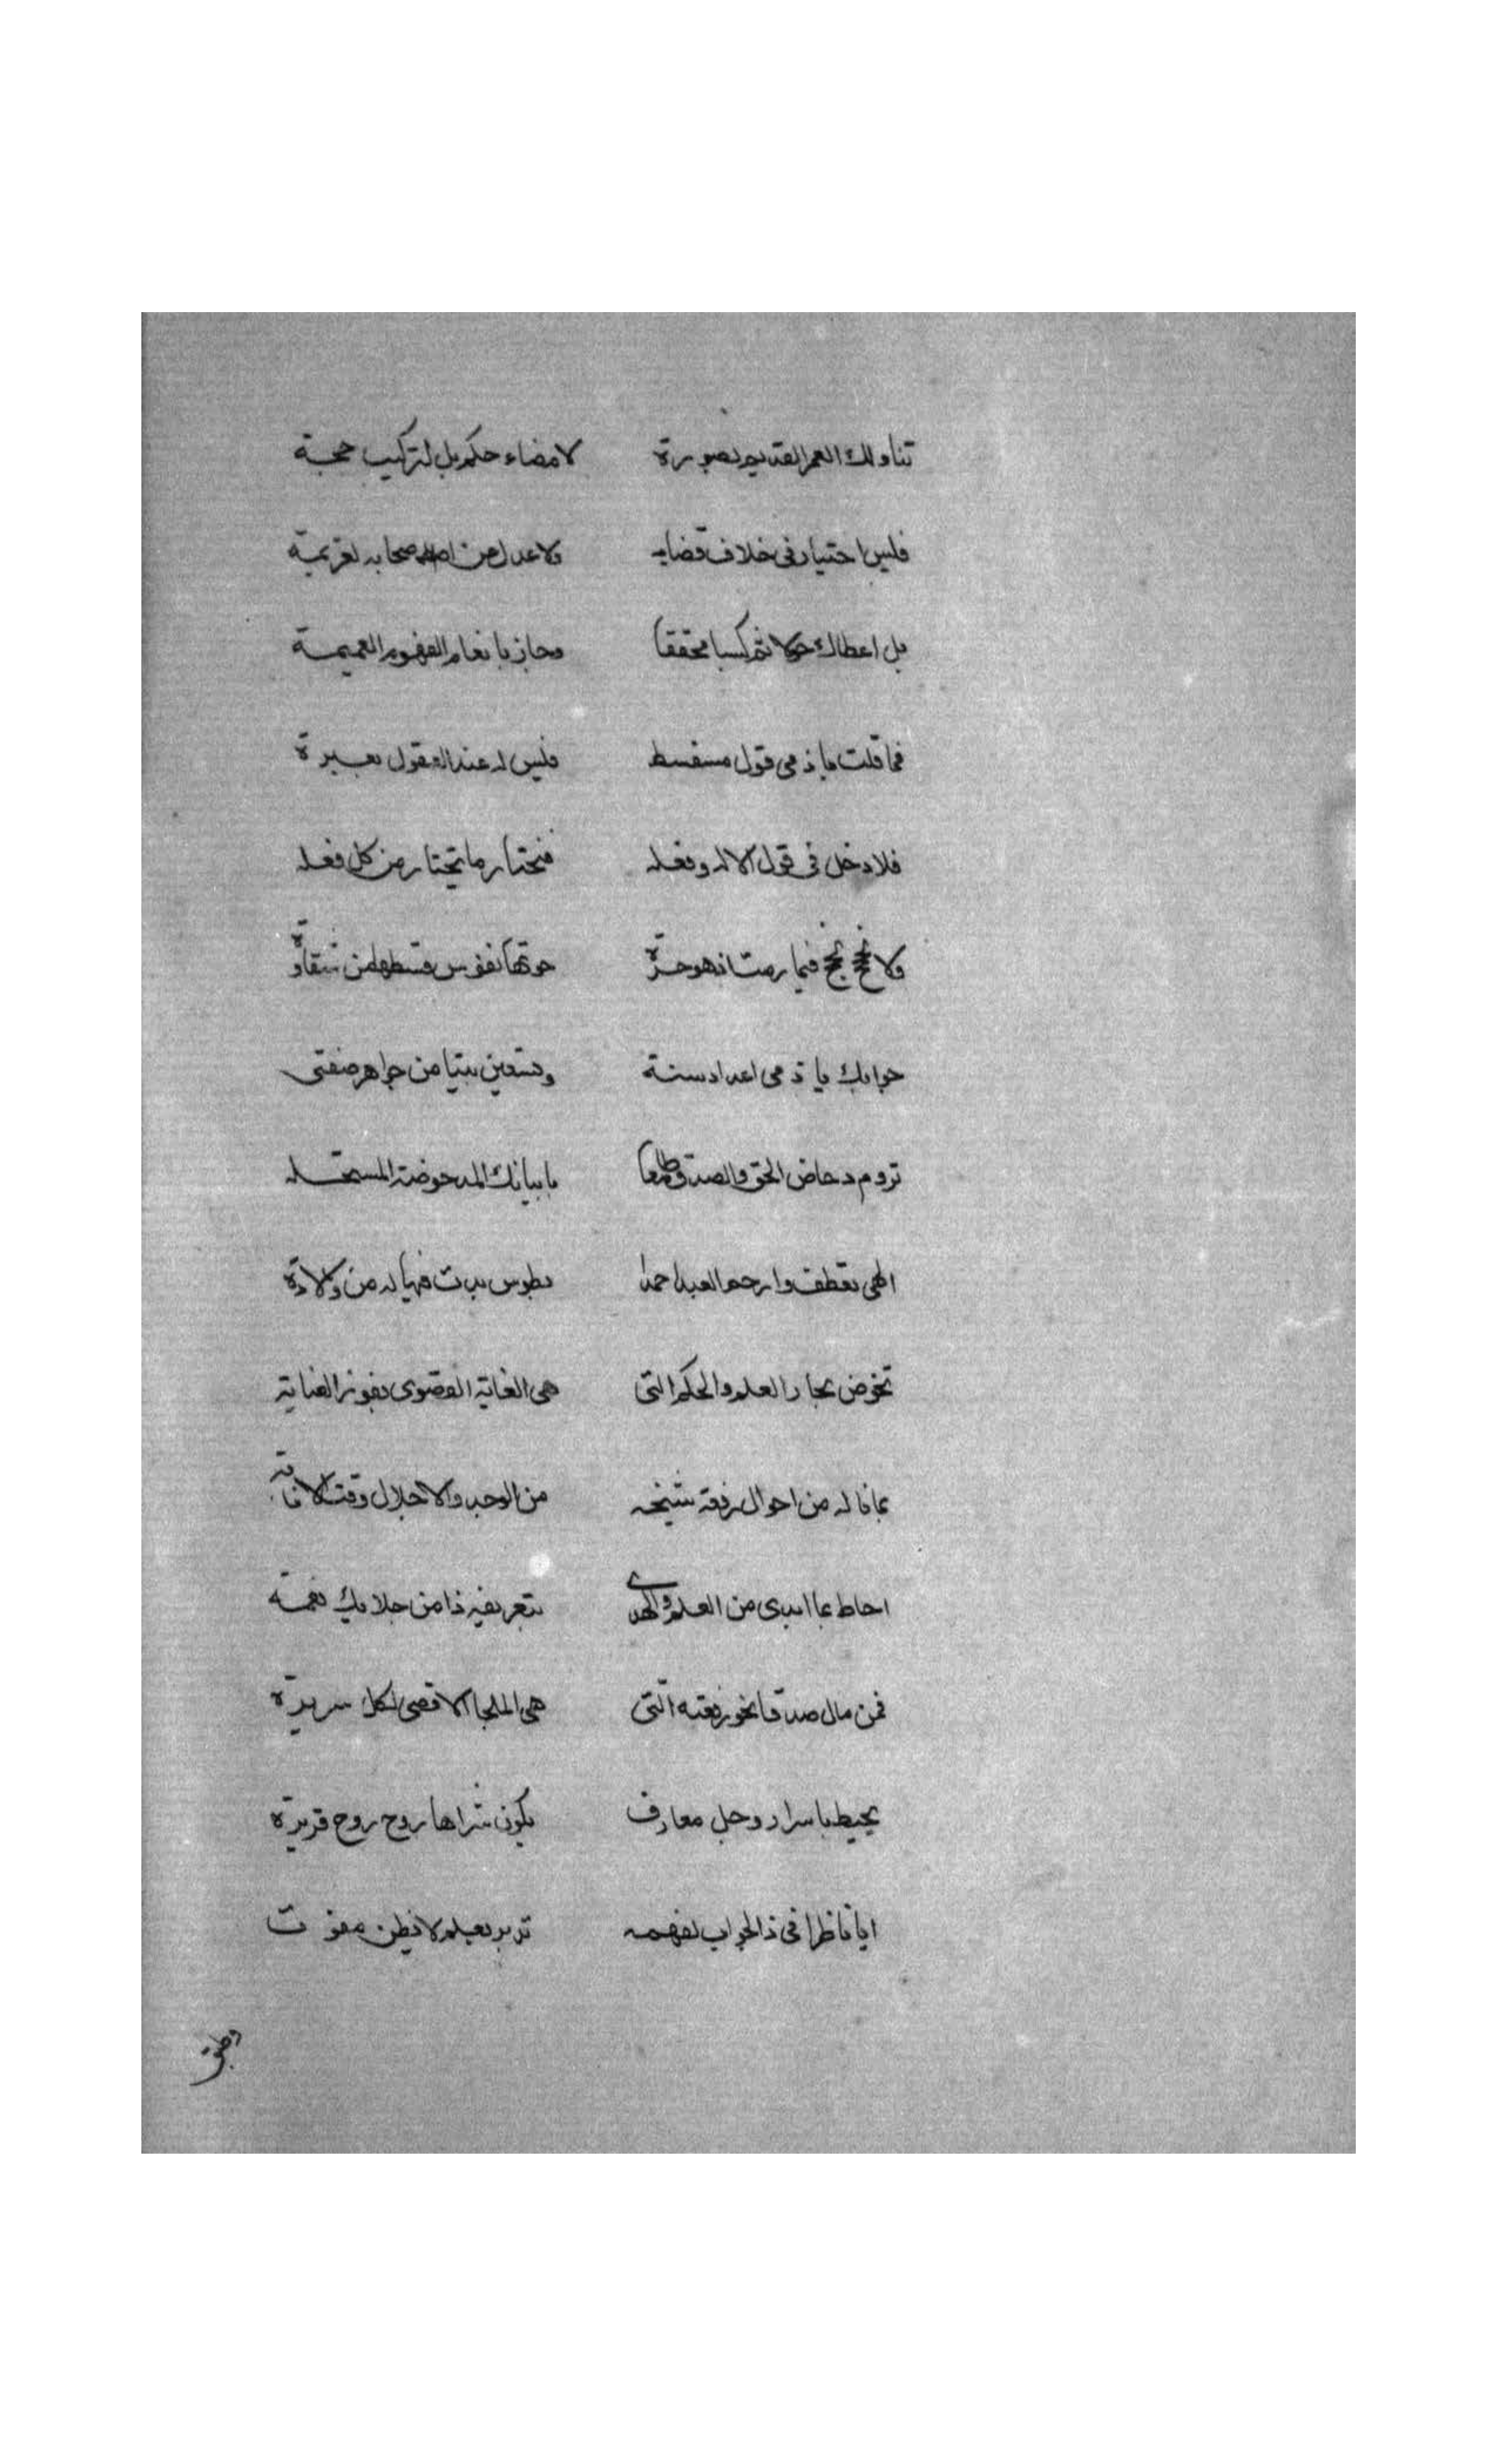 تناولك العمر القديم بصورة لامضاء حكم بل لتركيب حجة
فليس اختيار فى خلاف قضايه ولا عدل من صحابه لعزيمة
بل اعطاك حولا ثم كسبا محققا وحاز بانعام الفهوم العميمة
فما قلت ياذمى قول مسفسط فليس له عند العقول بعبرة
فلا دخل فى قول الاله وفعله فنختار ما يختار من كل فعله
ولا فيما رمت اذ هو حرة حوتها نفوس قسطها من شقاوة
جوابك يا ذمى اعداد سنة وتسعين بيتا من جواهر صنفتى
تروم دحاض الحق والصدق طامعا بابيانك المدحوضة المستحله
الهى تعطف وارحم العبد احمدا بطوس بدت فيها له من ولادة
تخوض بحار العلم والحكم التى هى الغاية القصوى بفوز العناية
بما ناله من احوال رفقة شيخه من الوجد والاجلال وقت الافاقة
احاط بما ابدى من العلم والهدى بتعريفه ذا من جلابيك نعمة
فمن مال صدقا نحو رفعته التى هى الملجا الاقصى لكل سريرة
يحيط باسرار وجل معارف يكون شراها روح روح قريرة
ايا ناظرا فى ذا الجواب لفهمه تدبر بعلم لا بظن مفوت
وظنى